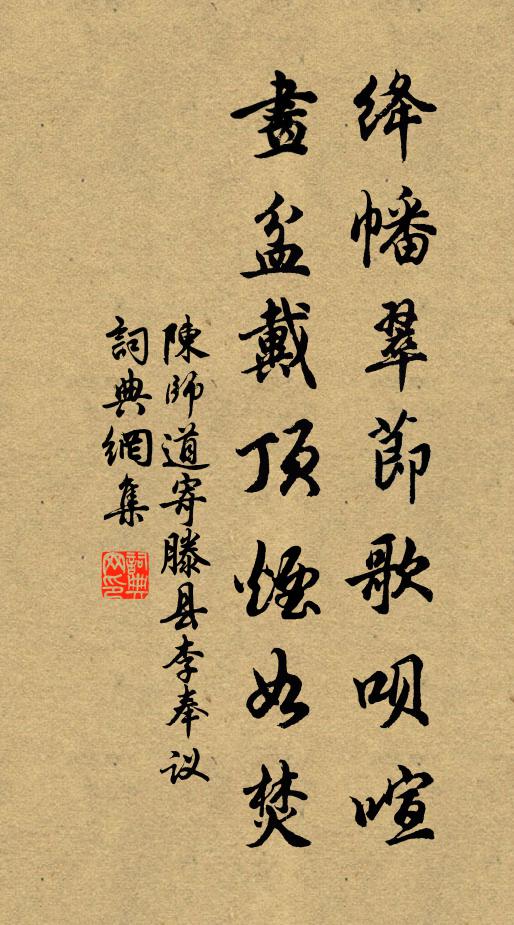 绛幡翠節歌呗喧
畫盆戴顶煙如焚
陳师道寄滕县李奉议
詞典網集
詞典网印